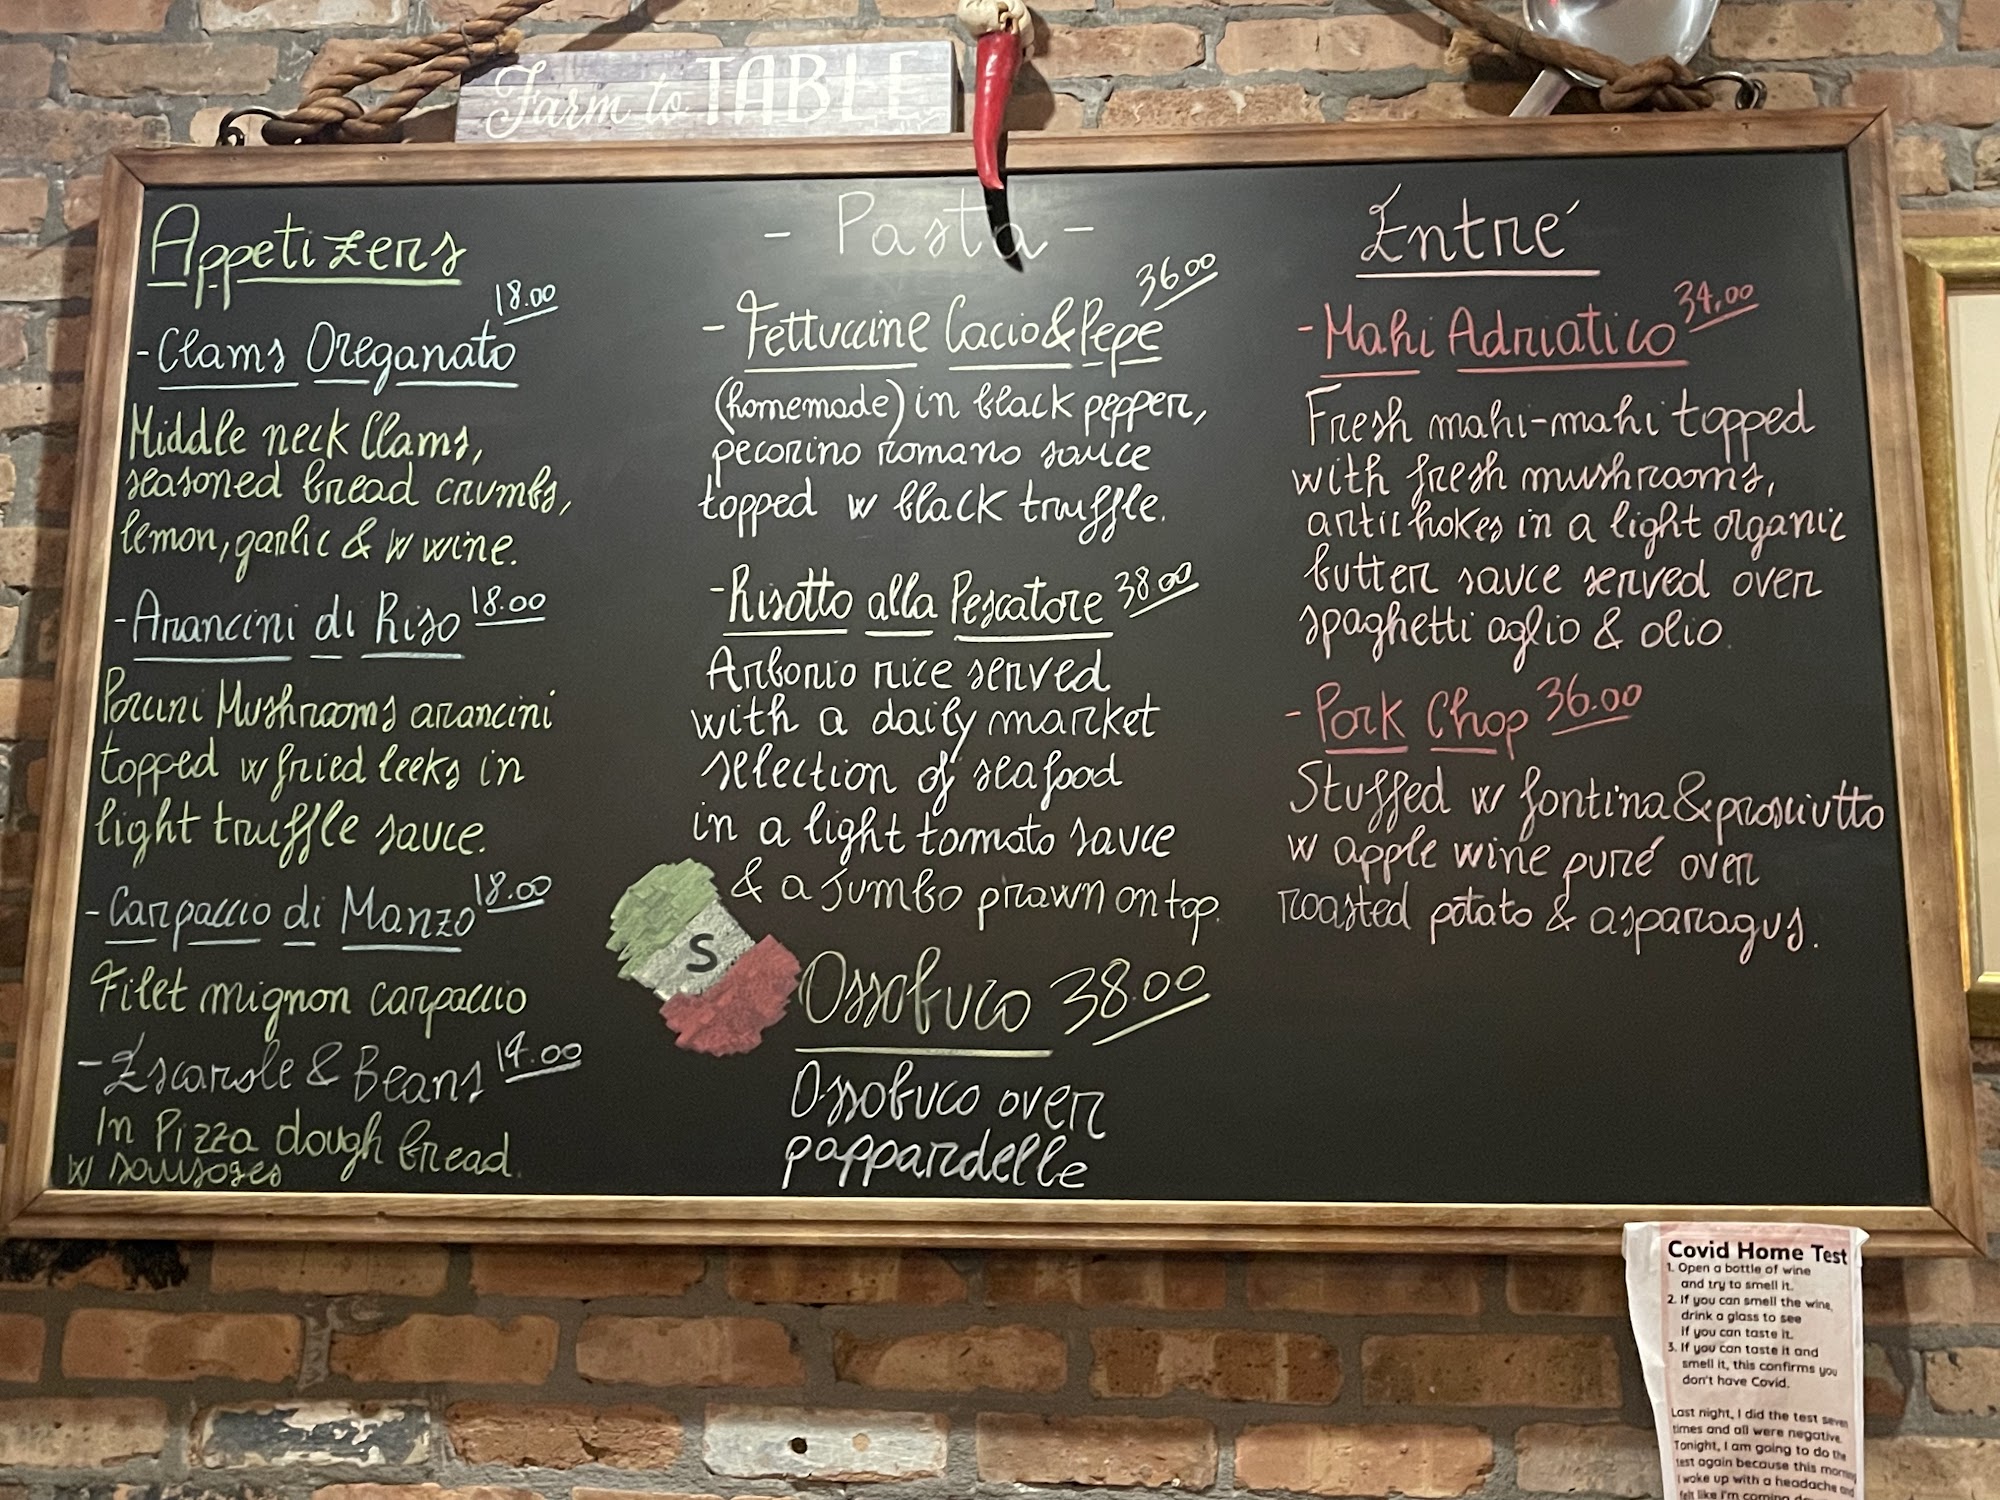 Farm to TABLE
Appetizers
18.00
-Clams Oreganato
Middle neck Clams,
seasoned bread crumbs,
lemon, garlic & w wine.
-Arancini di Riso 18.00
Porcini Mushrooms arancini
topped w fried leeks in
light truffle sauce.
-Carpaccio di Manzo 18.00
Filet mignon carpaccio
-Escarole & Beans 14.00
In Pizza dough bread.
w sausages
- Pasta -
36.00
-Fettuccine Cacio & Pepe
(homemade) in black pepper,
pecorino romano sauce
topped w black truffle.
-Risotto alla Pescatore 38.00
Arborio rice served
with a daily market
selection of seafood
in a light tomato sauce
& a Jumbo prawn on top.
S
Ossobuco 38.00
Ossobuco over
pappardelle
Entré
-Mahi Adriatico 34.00
Fresh mahi-mahi topped
with fresh mushrooms,
artichokes in a light organic
butter sauce served over
spaghetti aglio & olio.
-Pork Chop 36.00
Stuffed w fontina & prosciutto
w apple wine puré over
roasted potato & asparagus.
Covid Home Test
1. Open a bottle of wine
and try to smell it.
2. If you can smell the wine,
drink a glass to see
if you can taste it.
3. If you can taste it and
smell it, this confirms you
don't have Covid.
Last night, I did the test seven
times and all were negative.
Tonight, I am going to do the
test again because this morning
I woke up with a headache and
felt like I'm coming